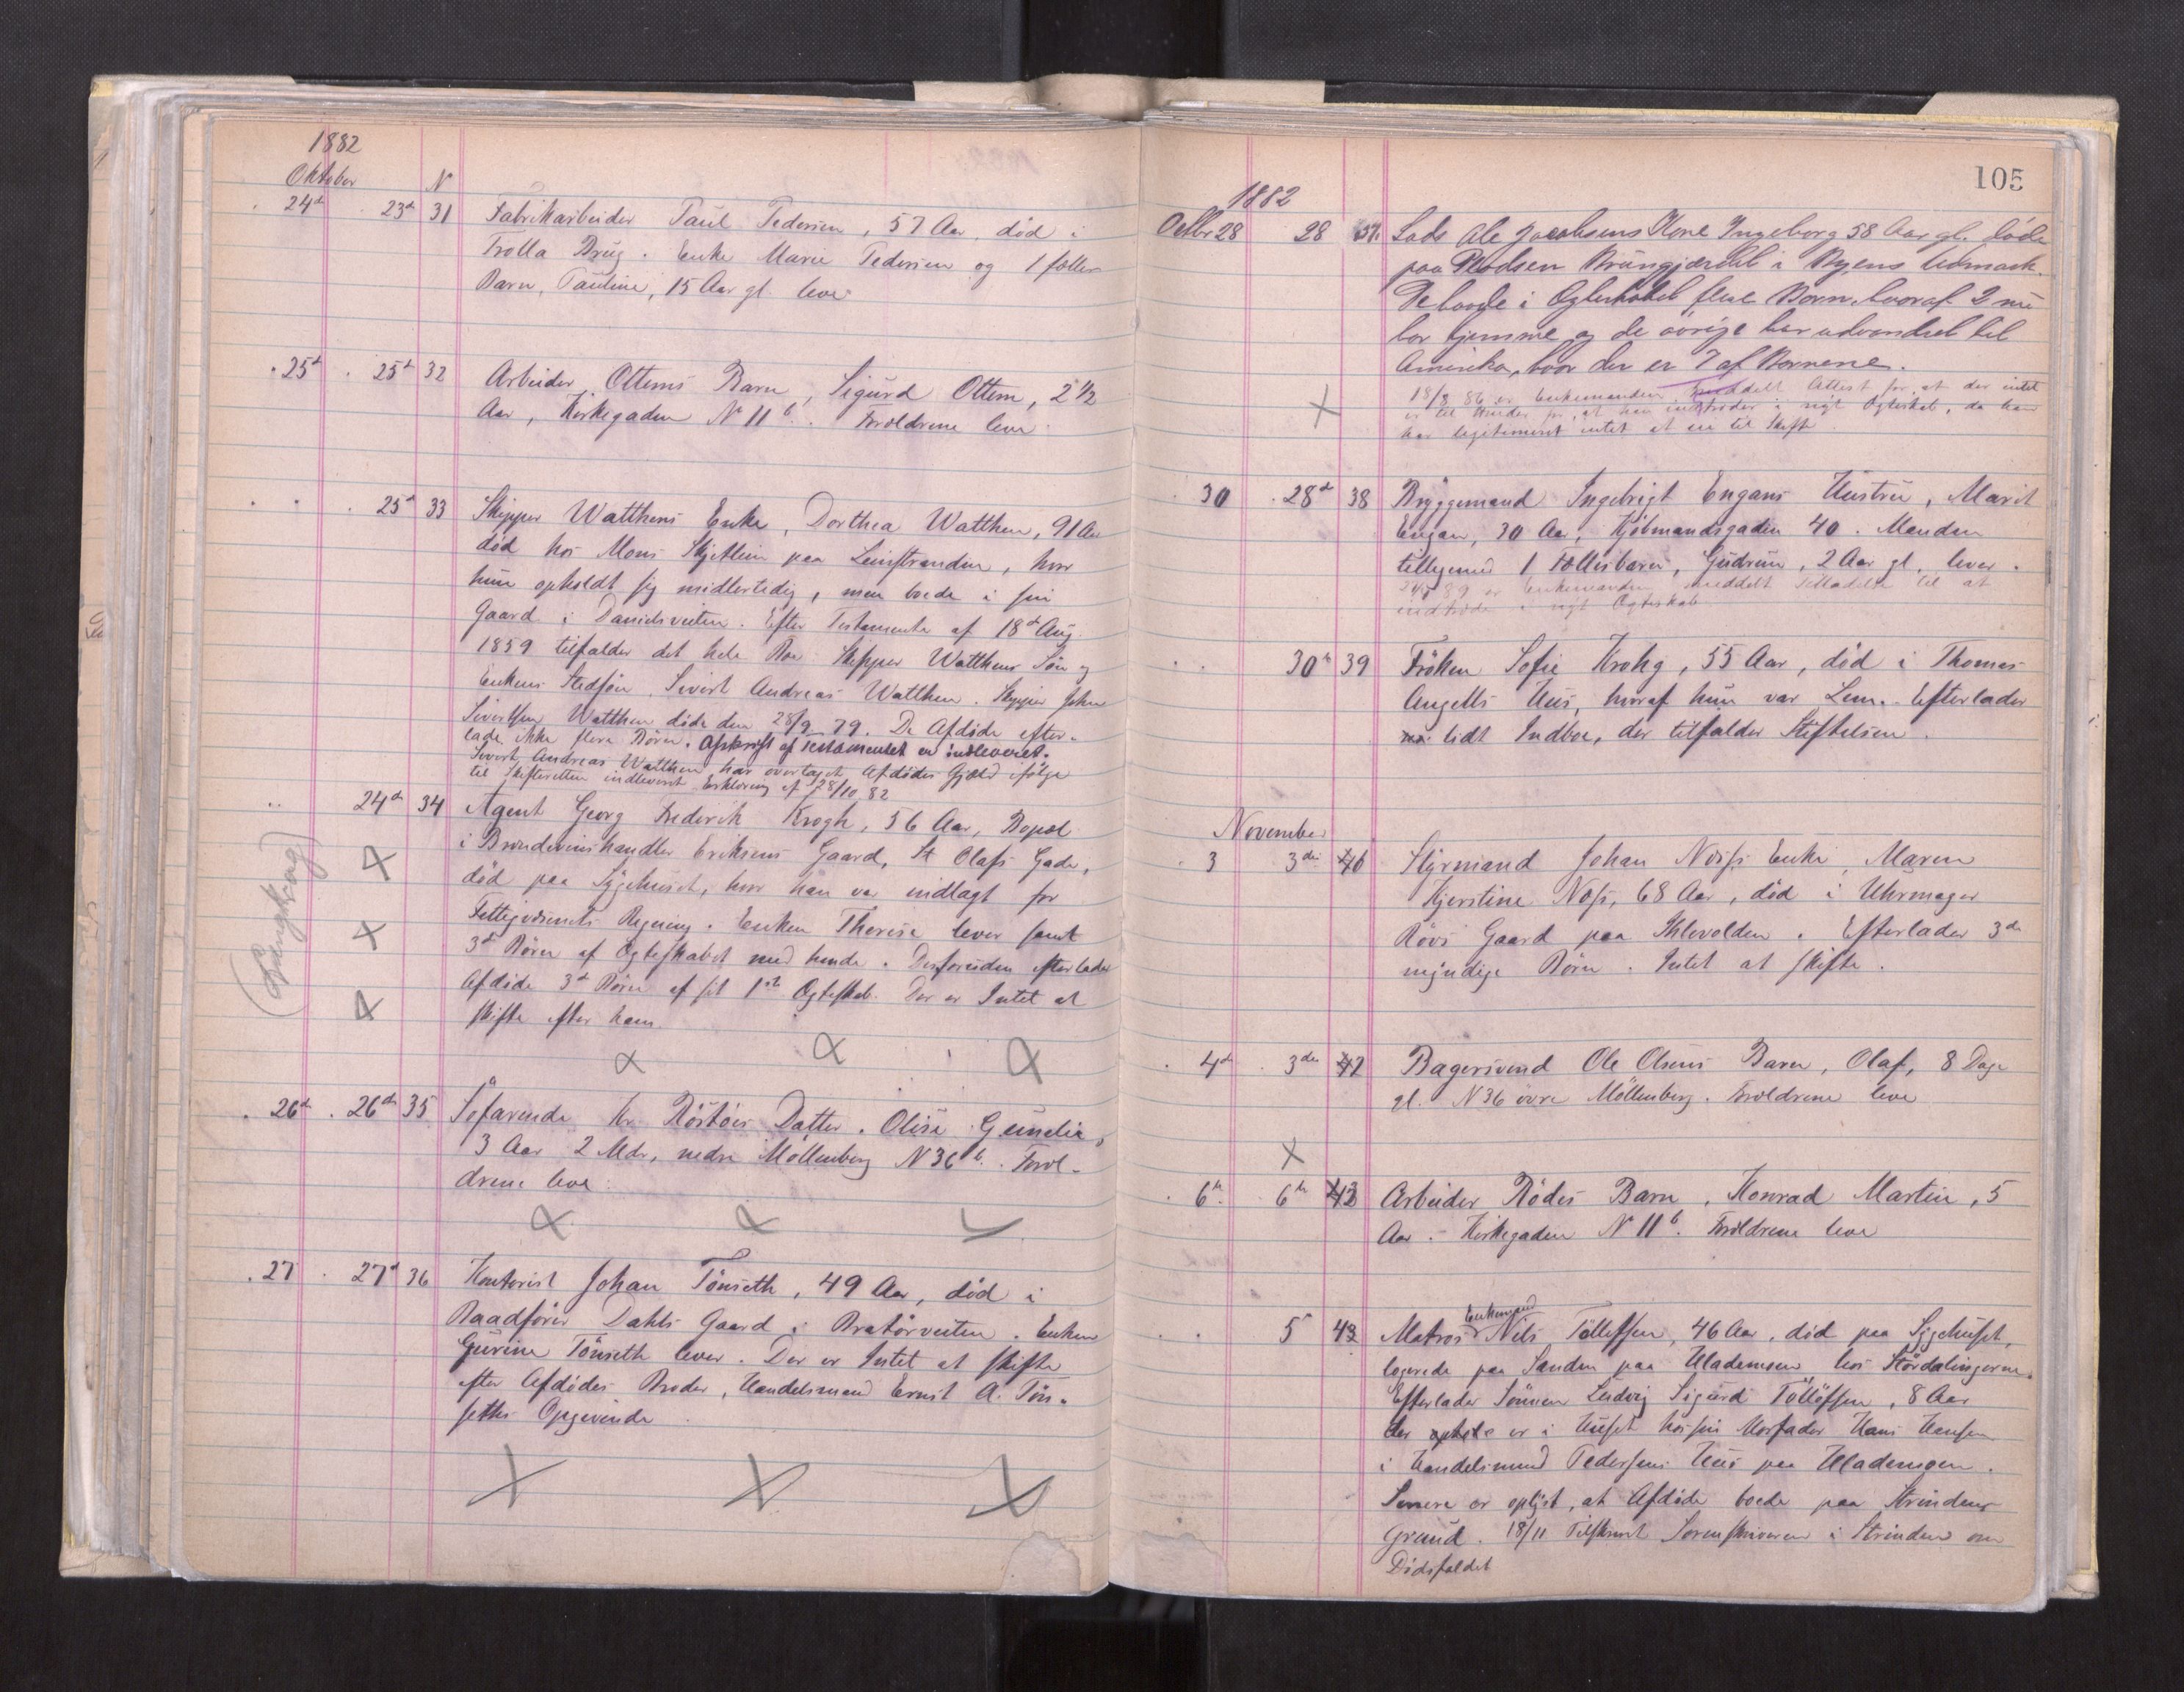 1882
Oktober N
24d 23d 31 Fabrikarbeider Paul Pedersen, 57 Aar, död i
Trolla Brug. Enke Marie Pedersen og 1 fælles
Barn, Pauline, 15 Aar gl. lever
25d 25d 32 Arbeider Ottems Barn, Sigurd Ottem, 2 1/2
Aar, Kirkegaden No 11b. Forældrene leve
25d 33 Skipper Watthens Enke, Dorthea Watthen, 91 Aar
död hos Mons Skjetlein paa Leinstranden, hvor
hun opholdt sig midlertidig, men boede i sin
Gaard i Danielsveiten. Efter Testamente af 18d Aug.
1859 tilfalder det hele Bo Skipper Watthens Sön og
Enkens Stedsön, Sivert Andreas Watthen. Skipper John
Sivertsen Watthen döde den 28/9 79. De Afdöde efter-
lade ikke flere Börn. Afskrift af Testamentet er indleveret.
Sivert Andreas Watthen har overtaget Afdödes Gjæld ifölge
til Skifteretten indleveret Erklæring af 28/10 82
24de 34 Agent Georg Frederik Krogh, 56 Aar, Bopæl
i Brændevinshandler Eriksens Gaard, St Olafs Gade,
död paa Sygehuset, hvor han var indlagt for
Fattigvæsenets Regning. Enken Therese lever samt
3de Börn af Ægteskabet med hende. Desforuden efterlader
Afdöde 3de Börn af sit 1ste Ægteskab. Der er Intet at
skifte efter ham
26d 26de 35 Söfarende Kr. Röstöes Datter, Olise Gunelie,
3 Aar 2 Mdr, nedre Möllenberg N 36b. Foræl-
drene leve
27 27d 36 Kontorist Johan Tönseth, 49 Aar, död i
Raadförer Dahls Gaard i Bratörveiten. Enken
Gurine Tönseth lever. Der er Intet at skifte
efter Afdödes Broder, Handelsmand Ernst A. Tön-
seths Opgivende
105
1882
Octbr 28 28 37. Lods Ole Jacobsens Kone Ingeborg 58 Aar gl. döde
paa Bynes Udmark.
De havde i Ægteskabet flere Börn, hvoraf 2 nu
bor hjemme og de övrige har udvandret til
Amerika, hvor der er 7 af Börnene.
18/8 86 er Enkemanden meddelt Attest for, at der intet
er til Hinder for, at han indtræder i nyt Ægteskab, da han
har legitimeret intet at eie til Skifte
30 28d 38 Bryggemand Ingebrigt Engans Hustru, Marit
Engan, 30 Aar, Kjöbmandsgaden 40. Manden
tilligemed 1 Fællesbarn, Gudrun, 2 Aar gl. lever.
89 er Enkemanden meddelt Tilladelse til at
indtræde i nyt Ægteskab
30te 39 Fröken Sofie Krohg, 55 Aar, död i Thomas
Angells Hus, hvoraf hun var Lem. Efterlader
lidt Indbo, der tilfalder Stiftelsen.
November
3 3die 40 Styrmand Johan Næss' Enke, Maren
Kjerstine Næss, 68 Aar, död i Uhrmager
Rövs Gaard paa Ihlevolden. Efterlader 3de
myndige Börn. Intet at skifte.
4d 3die 41 Bagersvend Ole Olsens Barn, Olaf, 8 Dage
gl. N 36 övre Möllenberg. Forældrene leve
6te 6te 42 Arbeider Rödes Barn, Konrad Martin, 5
Aar. Kirkegaden No 11b. Forældrene leve
5 43 Matros Enkemand Nils Tollefsen, 46 Aar, död paa Sygehuset,
logerede paa Sanden paa Hlademoen hos Stördalingerne.
Efterlader Sönnen Ludvig Sigurd Tollefsen, 8 Aar
der er i Huset hos sin Morfader Hans Hansen
i Handelsmand Pedersens Hus paa Hlademoen.
Senere er oplyst, at Afdöde boede paa Strindens
Grund. 18/11 Tilskrevet Sorenskriveren i Strinden om
Dödsfaldet